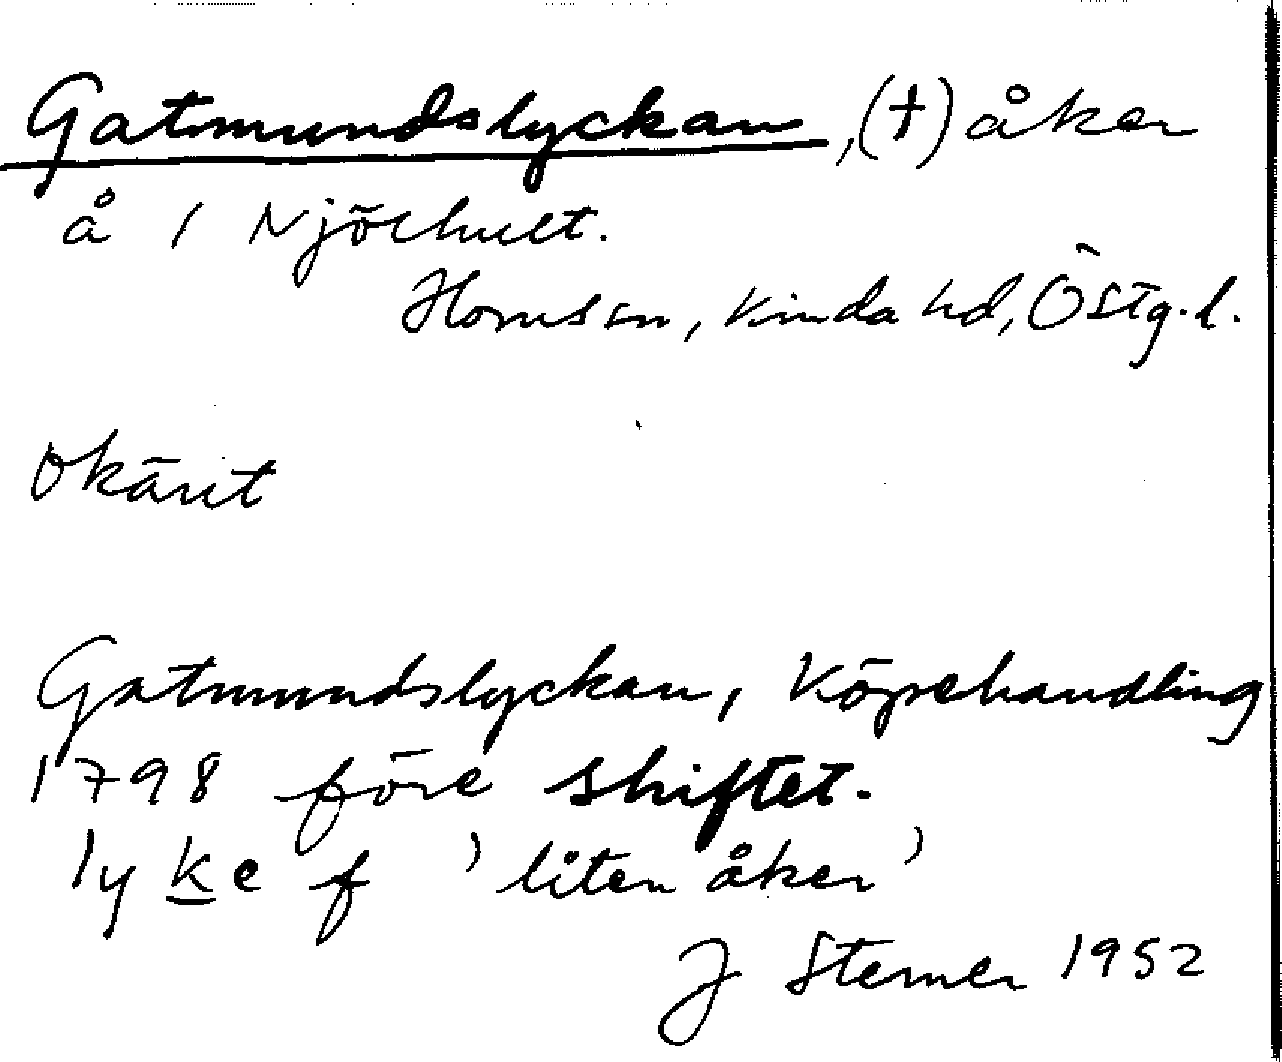 Gatmundslyckan, (†) åker
å 1 Njölhult.
Horns sn, Kinda hd, Östg.l.
Okänt
Gatmundslyckan, Köpehandling
1798 före skiftet.
lyke f 'liten åker'
J Sterner 1952